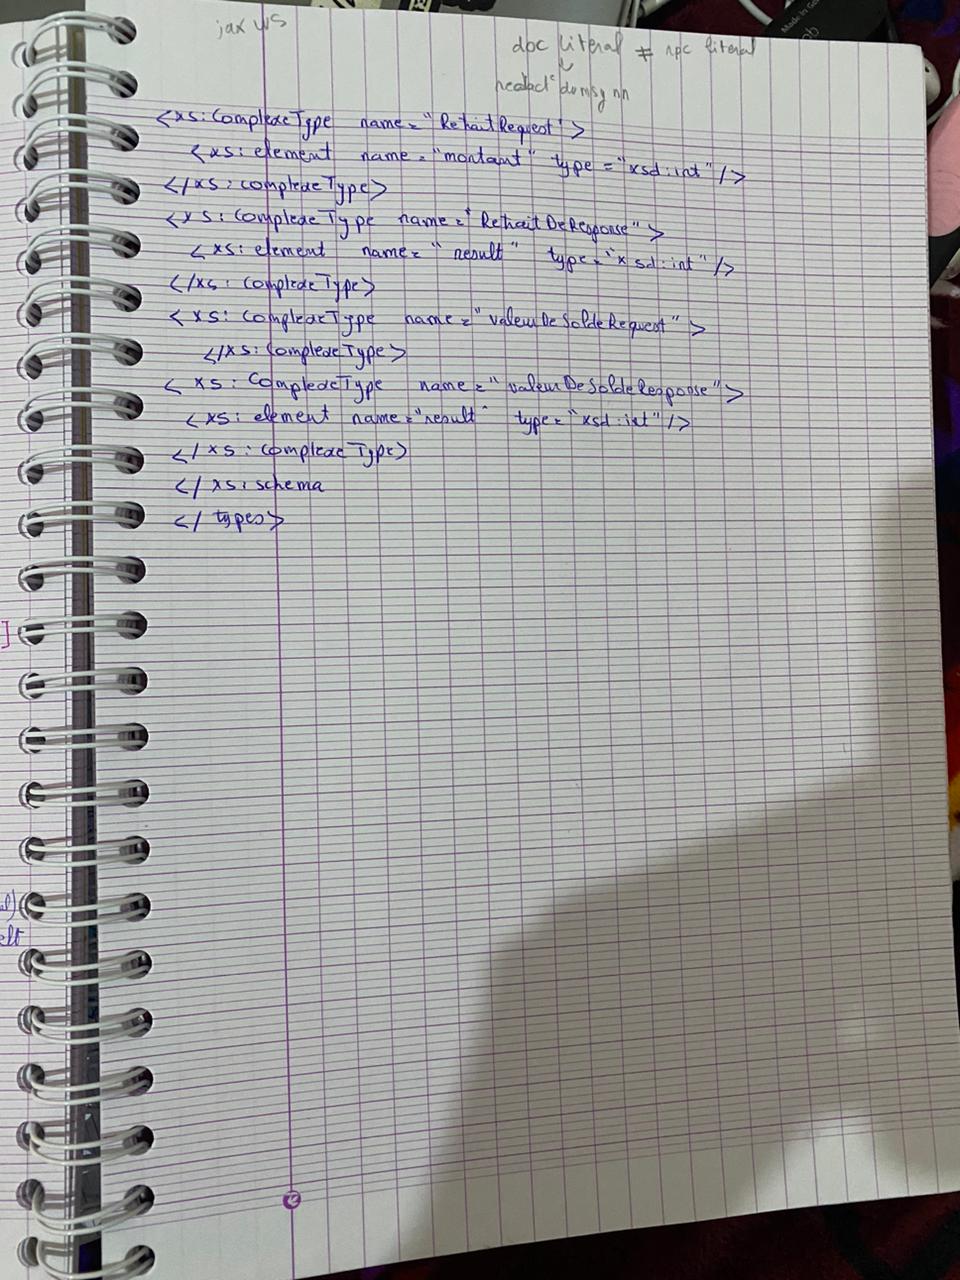 jax ws
doc literal ≠ rpc literal
↓
<xs:ComplexeType name="RetraitRequest">
<xs:element name="montant" type="xsd:int"/>
</xs:complexeType>
<xs:ComplexeType name="RetraitDeResponse">
<xs:element name="result" type="xsd:int"/>
</xs:complexeType>
<xs:ComplexeType name="valeurDeSoldeRequest">
</xs:ComplexeType>
<xs:ComplexeType name="valeurDeSoldeResponse">
<xs:element name="result" type="xsd:int"/>
</xs:complexeType>
</xs:schema
</types>
]
elt